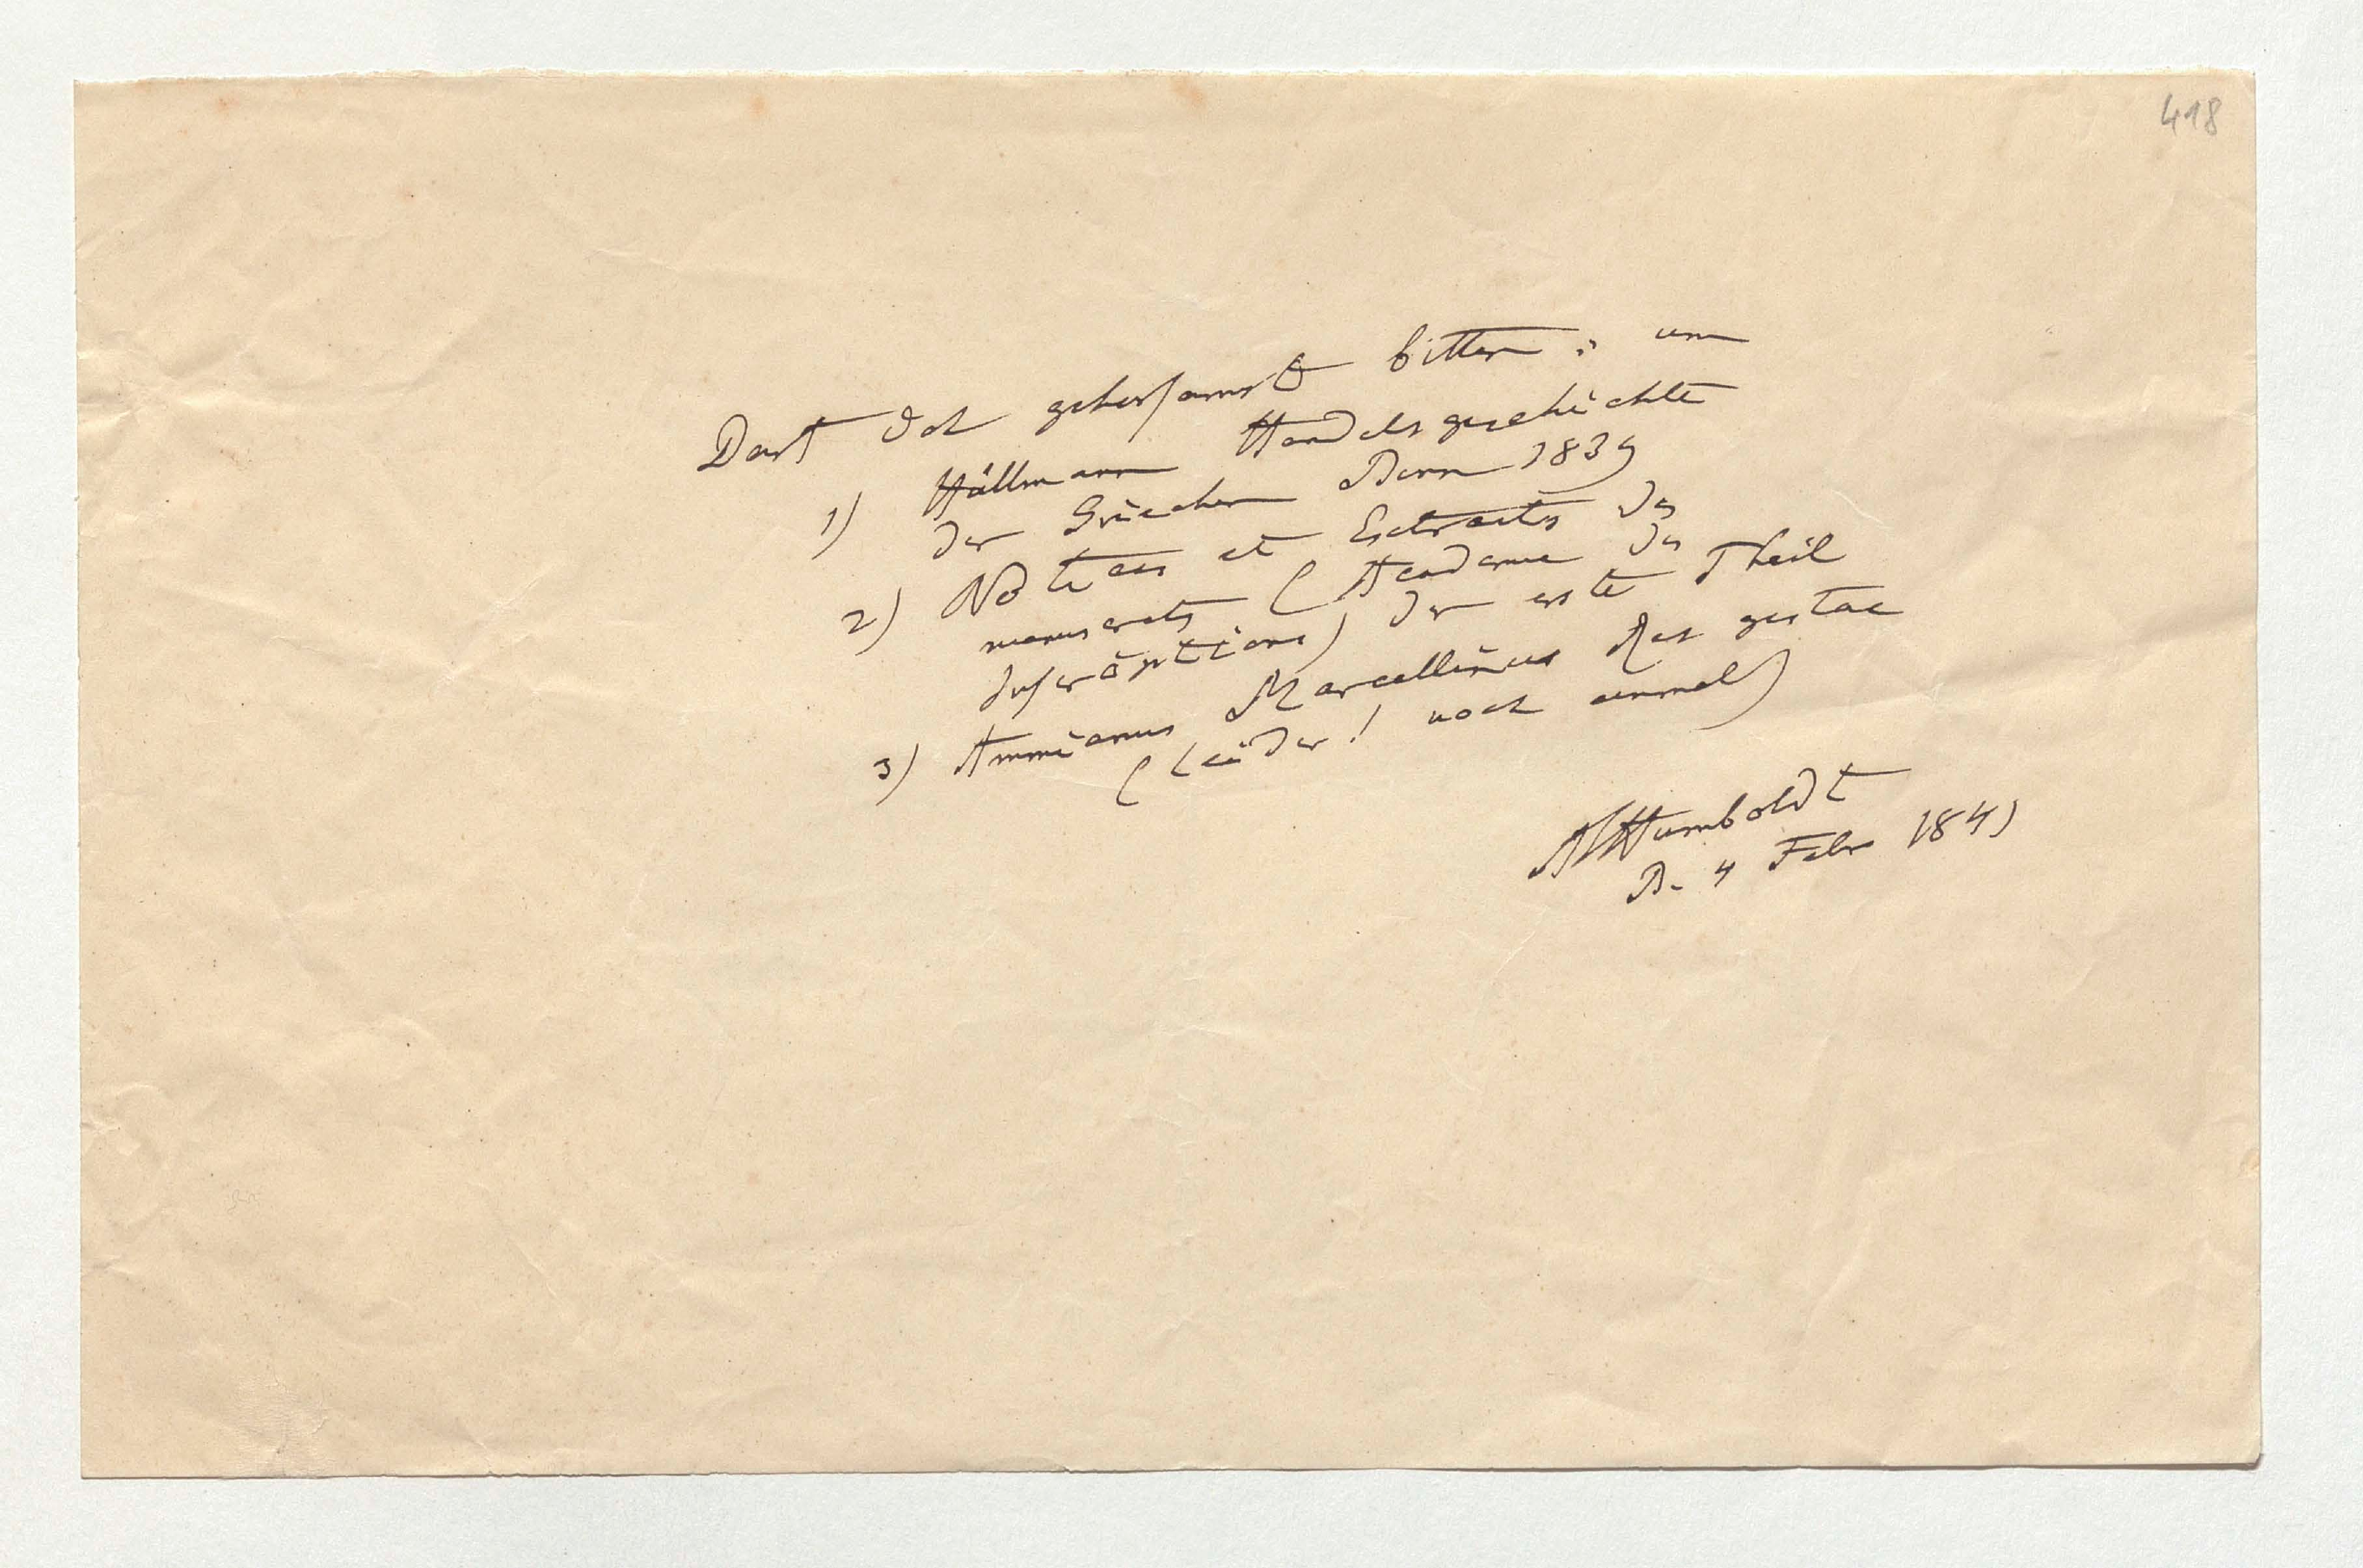 418
Darf ich gehorsamst bitten : um
1) Hüllmann Handelsgeschichte
der Griechen Bonn 1839
2) Notices et Extraits des
manuscrits (Academie des
Inscriptions) der erste Theil
3) Ammianus Marcellinus Res gestae
(leider! noch einmal)
AHumboldt
B. 4 Febr 1841